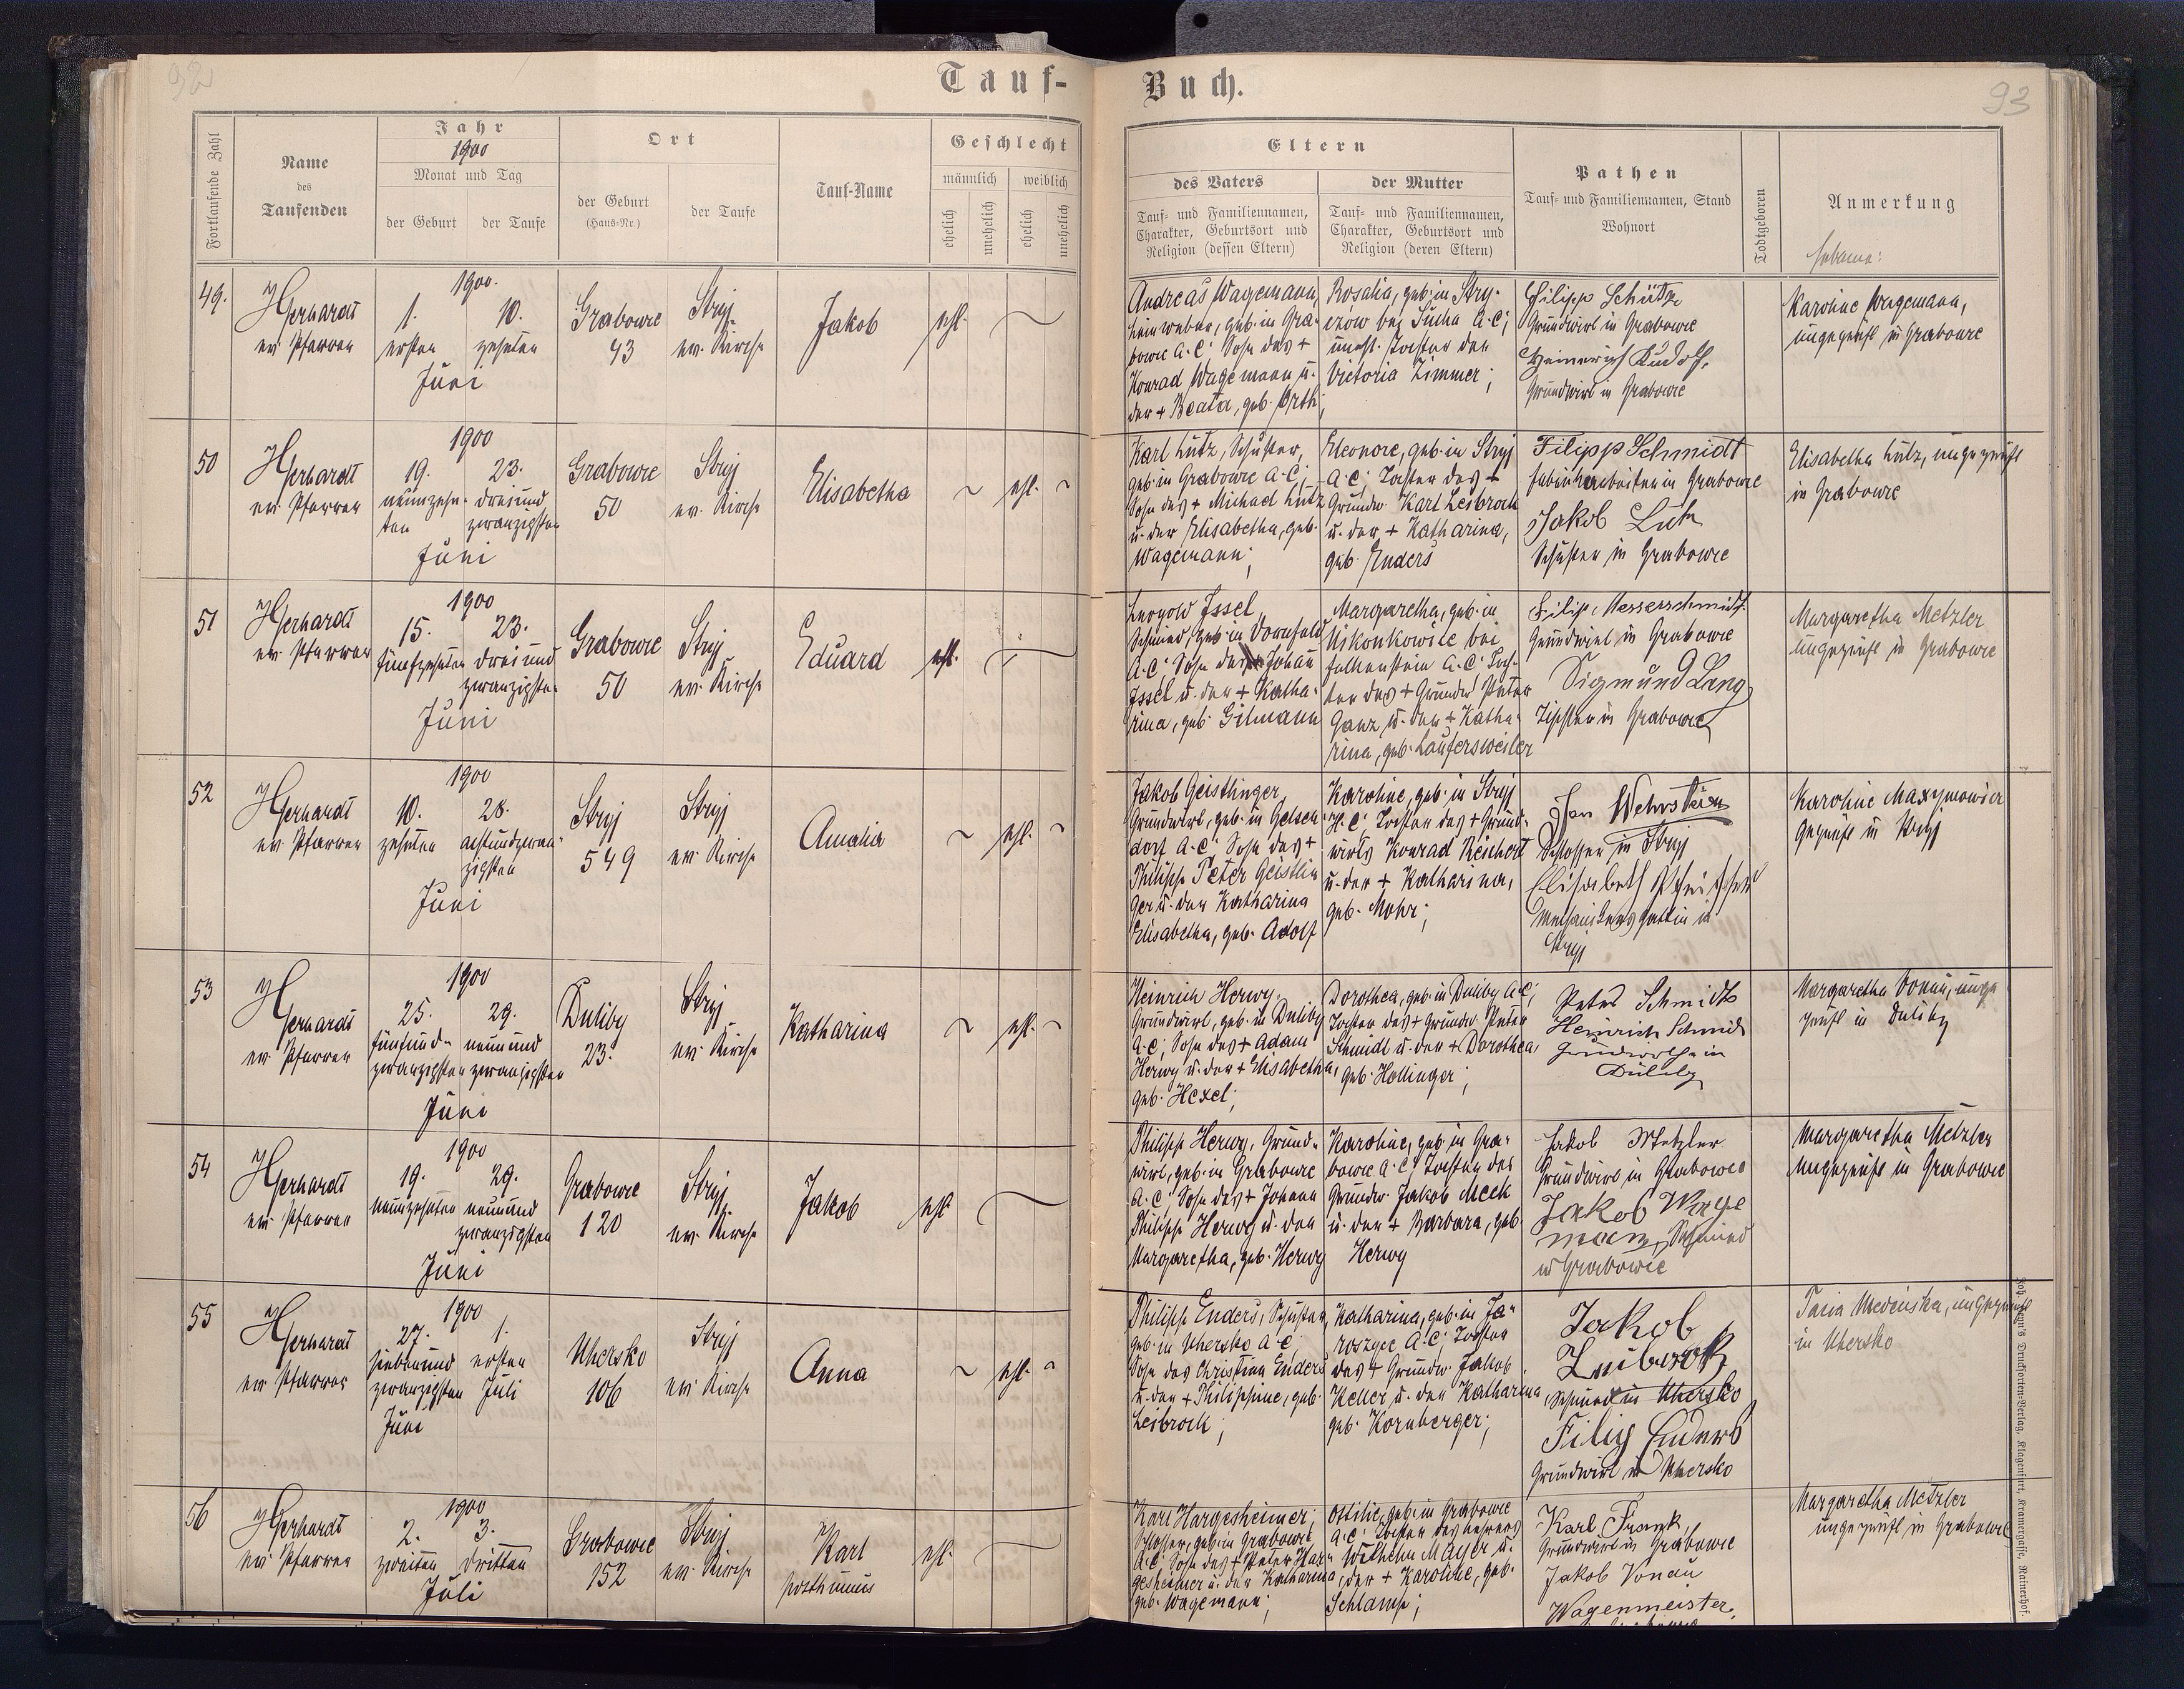 92
Tauf-
Buch.
93
Fortlaufende Zahl
Name
des
Taufenden
Jahr
1900
Monat und Tag
der Geburt
der Taufe
Ort
der Geburt
(Haus-Nr.)
der Taufe
Tauf-Name
Geschlecht
männlich
weiblich
ehelich
unehelich
ehelich
unehelich
Eltern
des Vaters
Tauf- und Familiennamen,
Charakter, Geburtsort und
Religion (dessen Eltern)
der Mutter
Tauf- und Familiennamen,
Charakter, Geburtsort und
Religion (deren Eltern)
Pathen
Tauf- und Familiennamen, Stand
Wohnort
Todtgeboren
Anmerkung
Hebamme:
49.
Gerhardt
ev. Pfarrer
1900.
1.
ersten
10.
zehnten
Juni
Grabowce
43
Stryj
ev. Kirche
Jakob
ehl.
Andreas Wagemann,
Leinweber, geb. in Gra-
bowce A.C. Sohn des +
Konrad Wagemann u.
der + Beata, geb. Orth;
Rosalia, geb. in Stry-
ezów bei Sucha A.C;
unehl. Tochter der
Victoria Zimmer;
Filipp Schütz
Grundwirt in Grabowce
Heinerich Rudolf,
Grundwirt in Grabowce
Karoline Wagemann,
ungeprüft in Grabowce
50
Gerhardt
ev. Pfarrer
1900
19.
neunzehn-
ten
23.
dreiund
zwanzigsten
Juni
Grabowce
50
Stryj
ev. Kirche
Elisabetha
ehl.
Karl Lutz, Schuster,
geb. in Grabowce A.C;
Sohn des + Michael Lutz
u. der Elisabetha, geb.
Wagemann;
Eleonore, geb. in Stryj
A.C; Tochter des +
Grundw. Karl Leibrock
u. der + Katharina,
geb. Enders
Filipp Schmidt
Fabrikarbeiter in Grabowce
Jakob Lutz
Schuster in Grabowce
Elisabetha Lutz, ungeprüft
in Grabowce
51
Gerhardt
ev. Pfarrer
1900
15.
fünfzehnten
23.
dreiund
zwanzigsten
Juni
Grabowce
50
Stryj
ev. Kirche
Eduard
ehl.
Leopold Issel,
Schmied, geb. in Dornfeld
A.C. Sohn des Johann
Issel u. der + Katha-
rina, geb. Gilmann
Margaretha, geb. in
bei
Falkenstein A.C. Toch-
ter des + Grundw. Peter
Ganz u. der + Katha-
rina, geb. Laufersweiler
Filip Messerschmidt
Grundwirt in Grabowce
Sigmund Lang
Tischler in Grabowce
Margaretha Metzler
ungeprüft in Grabowce
52
Gerhardt
ev. Pfarrer
1900
10.
zehnten
28.
achtundzwan-
zigsten
Juni
Stryj
549
Stryj
ev. Kirche
Amalia
ehl.
Jakob Geistlinger,
Grundwirt, geb. in Gelsen
dorf A.C. Sohn des +
Philipp Peter Geistlin
ger u. der Katharina
Elisabetha, geb. Adolf
Karoline, geb. in Stryj
H.C. Tochter des + Grund-
wirts Konrad Reichert
u. der + Katharina,
geb. Mohr;
Jan Wehrstein
Schlosser in Stryj
Elisabeth
Mechanikers Gattin in
Stryj
Karoline Maxymowicz
geprüft in Stryj
53
Gerhardt
ev. Pfarrer
1900
25.
fünfund-
zwanzigsten
29.
neunund
zwanzigsten
Juni
Duliby
23.
Stryj
ev. Kirche
Katharina
ehl.
Heinrich Herwy,
Grundwirt, geb. in Duliby
A.C; Sohn des + Adam
Herwy u. der + Elisabetha,
geb. Hexel;
Dorothea, geb. in Duliby A.C;
Tochter des + Grundw. Peter
Schmidt u. der + Dorothea,
geb. Hollinger;
Peter Schmidt
Heinrich Schmidt
Grundwirthe in
Duliby
Margaretha Vonau, unge
prüft in Duliby
54
Gerhardt
ev. Pfarrer
1900
19.
neunzehnten
29.
neunund
zwanzigsten
Juni
Grabowce
120
Stryj
ev. Kirche
Jakob
ehl.
Philipp Herwy, Grund-
wirt, geb. in Grabowce
A.C; Sohn des + Johann
Philipp Herwy u. der
Margaretha, geb. Herwy
Karoline, geb. in Gra-
bowce A.C; Tochter des
Grundw. Jakob Meck
u. der + Barbara, geb.
Herwy
Jakob Metzler
Grundwirt in Grabowce
Jakob Wage
mann, Schmied
in Grabowce
Margaretha Metzler
ungeprüft in Grabowce
55
Gerhardt
ev. Pfarrer
1900
27.
siebenund
zwanzigsten
Juni
1.
ersten
Juli
Uhersko
106
Stryj
ev. Kirche
Anna
ehl.
Philipp Enders, Schuster,
geb. in Uhersko A.C;
Sohn des Christian Enders
u. der + Philippine, geb.
Leibrock;
Katharina, geb. in Ja-
roszyce A.C; Tochter
des + Grundw. Jakob
Keller u. der Katharina
geb. Kornberger;
Jakob
Leibrock
Schmied in Uhersko
Filip Enders
Grundwirt in Uhersko
ungeprüft
in Uhersko
56
Gerhardt
ev. Pfarrer
1900
2.
zweiten
3.
dritten
Juli
Grabowce
152
Stryj
ev. Kirche
Karl
posthumus
ehl.
Karl Hargesheimer;
Schlosser, geb. in Grabowce
A.C; Sohn des + Peter Har-
gesheimer u. der Katharina,
geb. Wagemann;
Ottilie, geb. in Grabowce
A.C. Tochter des Lehrers
Wilhelm Mayer u.
der + Karoline, geb.
Schlamp;
Karl Frank,
Grundwirt in Grabowce
Jakob Vonau
Wagenmeister,
Margaretha Metzler
ungeprüft in Grabowce
Druckforten-Verlag, Klagenfurt, Kramergasse, Rainerhof.